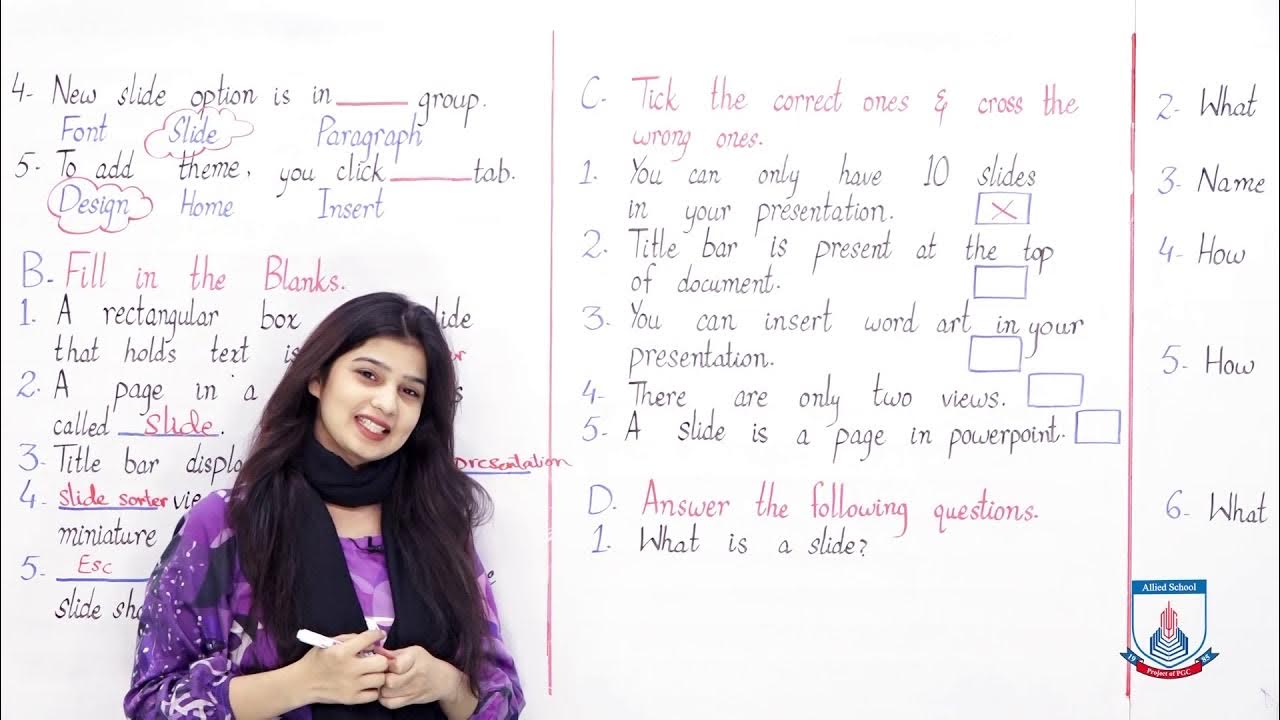 4- New slide option is in ______ group.
Font Slide Paragraph
5- To add theme, you click ______ tab.
Design Home Insert
B- Fill in the Blanks.
1. A rectangular box
that holds text is
2. A page in a
called slide.
3- Title bar presentation
4- slide sorter
miniature
5- Esc
slide
C- Tick the correct ones & cross the
wrong ones.
1. You can only have 10 slides
in your presentation. X
2. Title bar is present at the top
of document.
3- You can insert word art in your
presentation.
4- There are only two views.
5- A slide is a page in powerpoint.
D. Answer the following questions.
1. What is a slide?
2- What
3- Name
4- How
5- How
6- What
Allied School
19 85
Project of PGC